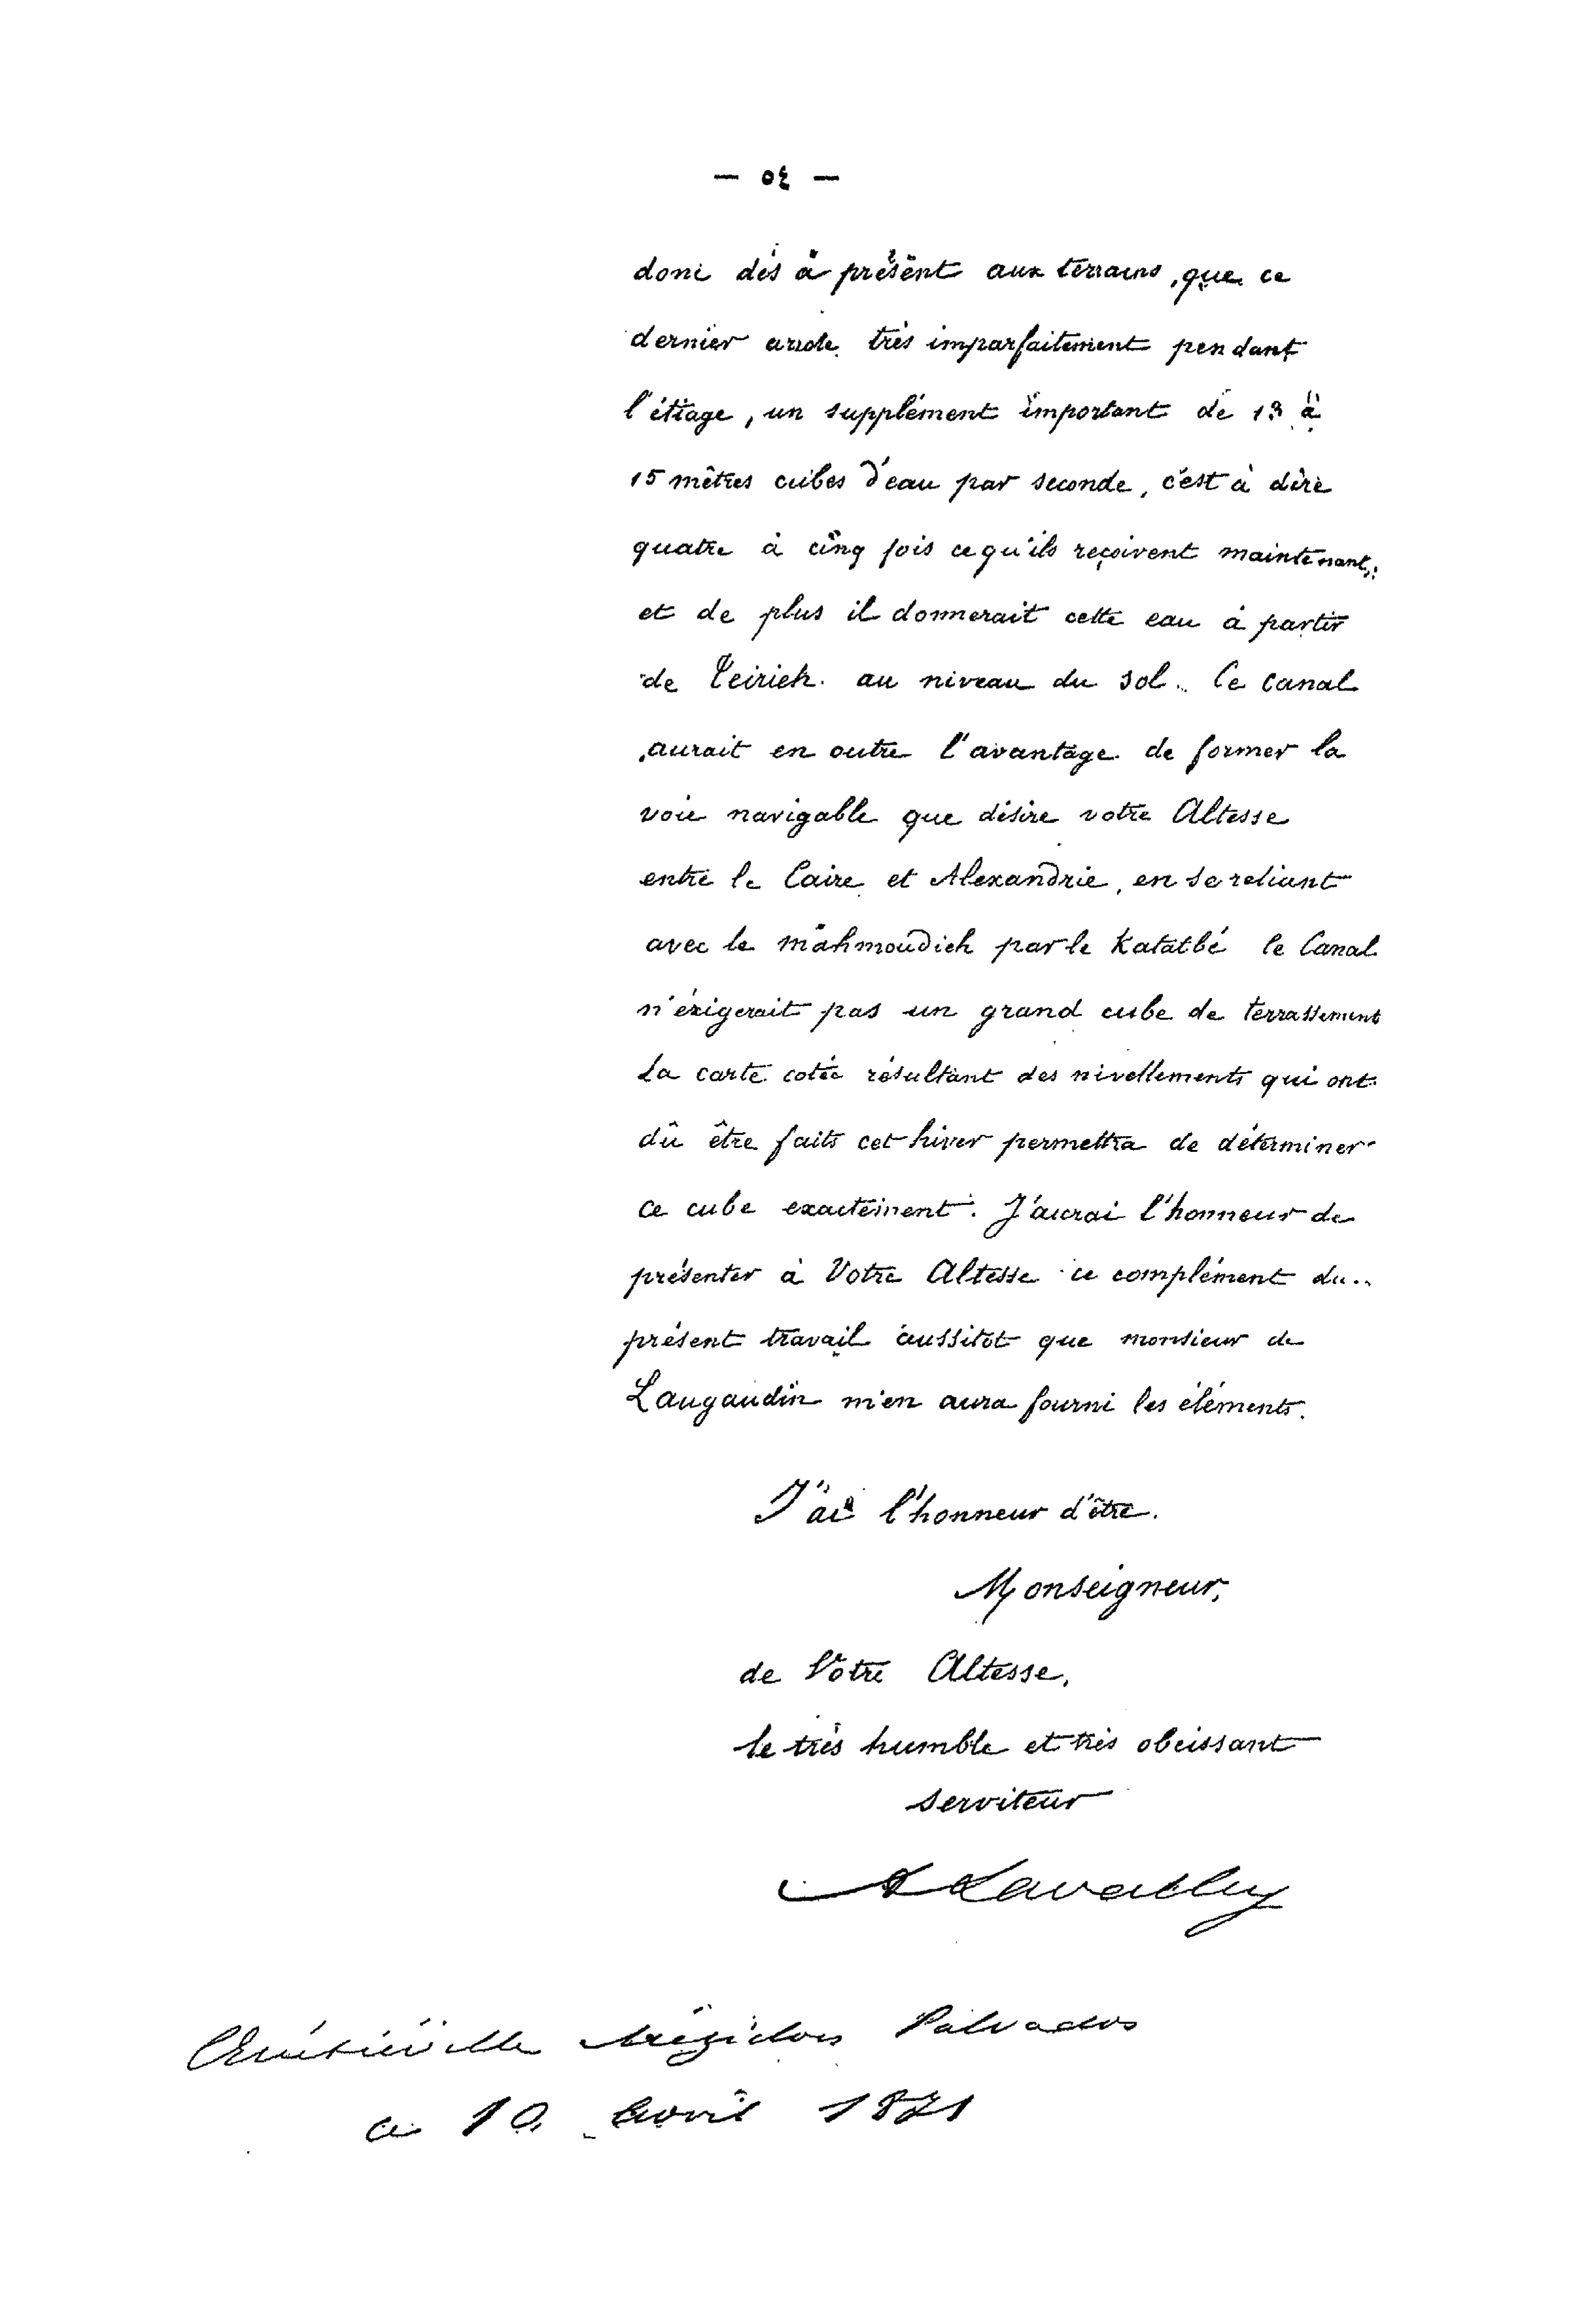 — ٥٤ —
donc dès à présent aux terrains, que ce
dernier arrose très imparfaitement pendant
l'étiage, un supplément important de 13 à
15 mètres cubes d'eau par seconde, c'est à dire
quatre à cinq fois ce qu'ils reçoivent maintenant;
et de plus il donnerait cette eau à partir
de Teirieh au niveau du sol. Ce canal
aurait en outre l'avantage de former la
voie navigable que désire votre Altesse
entre le Caire et Alexandrie, en se reliant
avec le mahmoudieh par le Katatbé le Canal
n'éxigerait pas un grand cube de terrassement
La carte cotée résultant des nivellements qui ont
dû être faits cet hiver permettra de déterminer
ce cube exactement. J'aurai l'honneur de
présenter à Votre Altesse ce complément du
présent travail aussitôt que monsieur de
Laugaudin m'en aura fourni les éléments.
J'ai l'honneur d'être.
Monseigneur,
de Votre Altesse,
le très humble et très obéissant
serviteur
A Lavalley
ce 10 avril 1871